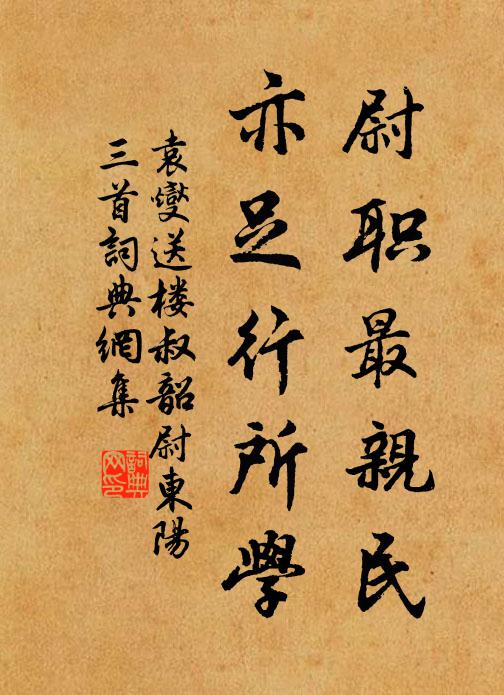 尉职最親民
亦足行所學
袁燮送楼叔韶尉東陽
三首詞典網集
詞典
网印